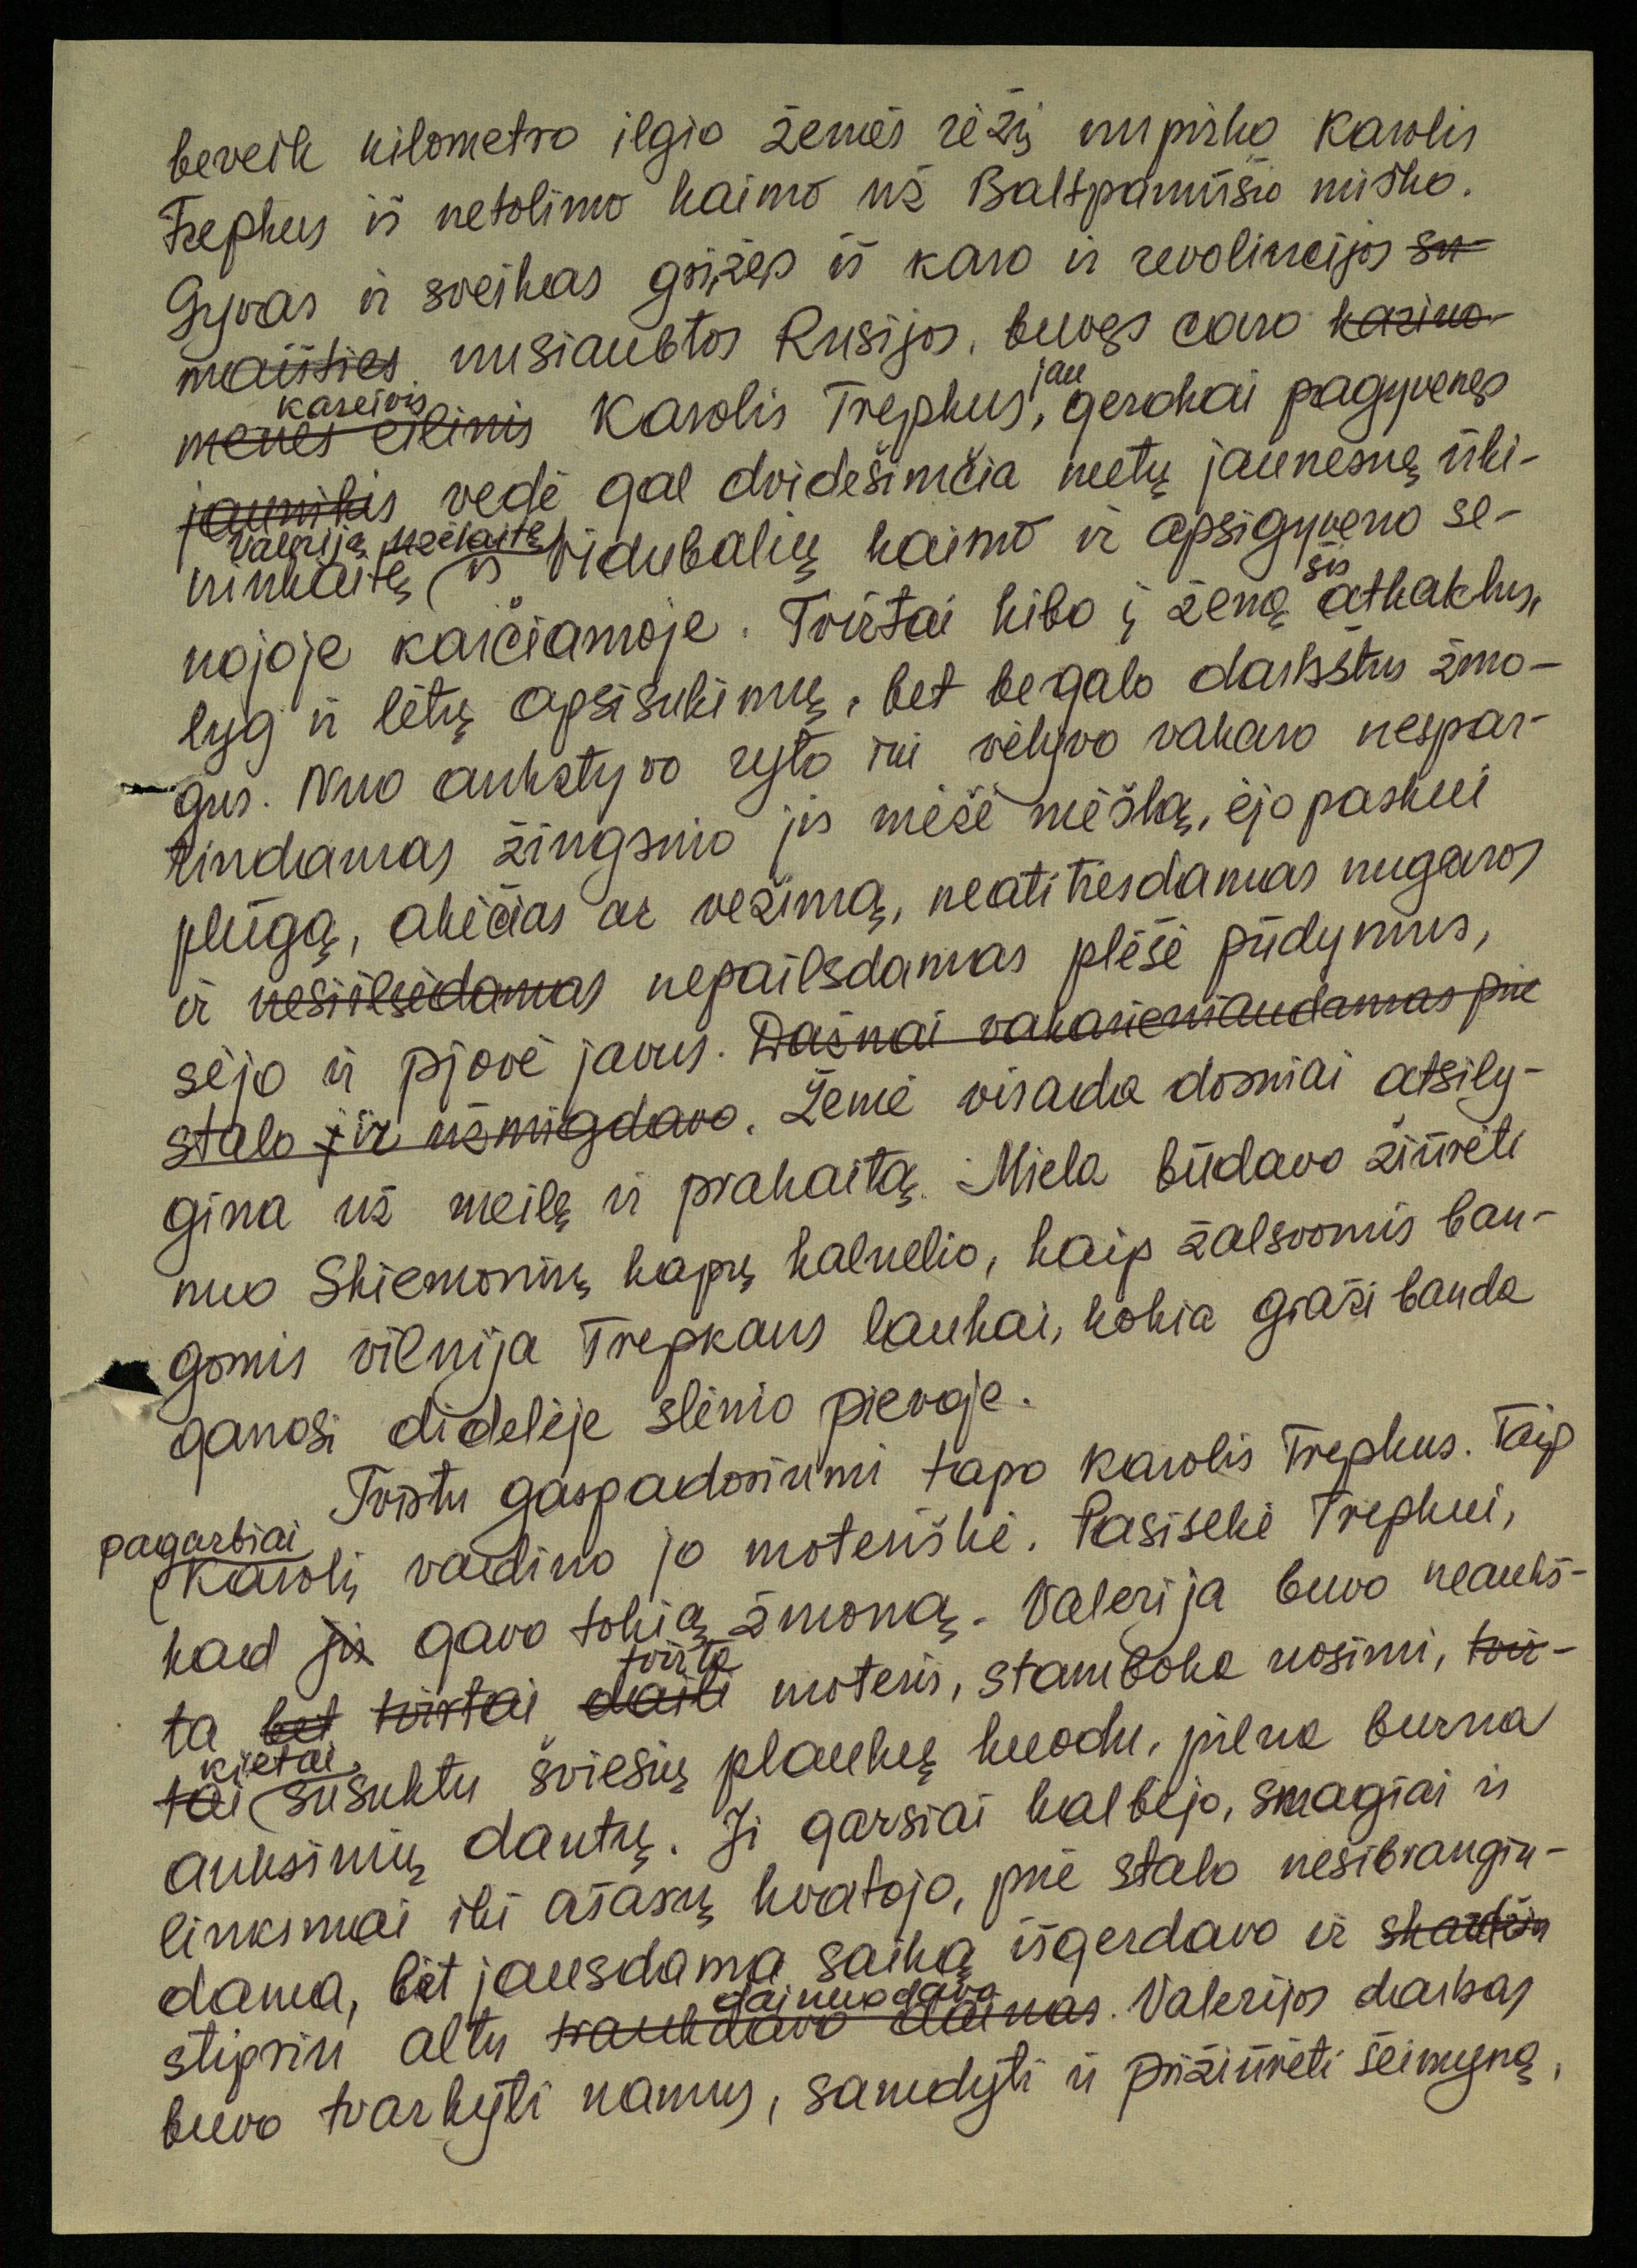 beveik kilometro ilgio žemės rėžį nupirko Karolis
Trepkus iš netolimo kaimo už Baltpamūšio miško.
Gyvas ir sveikas grįžęs iš karo ir revoliucijos su-
maišties nusiaubtos Rusijos, buvęs caro kariuo-
kareivis jau
menės eilinis Karolis Trepkus, gerokai pagyvenęs
jaunikis vedė gal dvidešimčia metų jaunesnę ūki-
Valeriją
ninkaitę iš Vidubalių kaimo ir apsigyveno se-
šis
nojoje karčiamoje. Tvirtai kibo į žemę atkaklus,
lyg ir lėtų apsisukimų, bet be galo darbštus žmo-
gus. Nuo ankstyvo ryto iki vėlyvo vakaro nespar-
tindamas žingsnio jis mėžė mėšlą, ėjo paskui
plūgą, akėčias ar vežimą, neatitiesdamas nugaros
ir nesiilsėdamas nepailsdamas plėšė pūdymus,
sėjo ir pjovė javus. Dažnai vakarieniaudamas prie
stalo ir užmigdavo. Žemė visada dosniai atsily-
gina už meilę ir prakaitą. Miela būdavo žiūrėti
nuo Skiemonių kapų kalnelio, kaip žalsvomis ban-
gomis vilnija Trepkaus laukai, kokia graži banda
ganosi didelėje slėnio pievoje.
Tvirtu gaspadoriumi tapo Karolis Trepkus. Taip
pagarbiai
Karolį vadino jo moteriškė. Pasisekė Trepkui,
kad jis gavo tokią žmoną. Valerija buvo neaukš-
tvirta
ta bet tvirtai daili moteris, stamboka nosimi, tvir-
kietai
tai susuktu šviesių plaukų kuodu, pilna burna
auksinių dantų. Ji garsiai kalbėjo, smagiai ir
linksmai iki ašarų kvatojo, prie stalo nesibrangin-
dama, bet jausdama saiką išgerdavo ir
dainuodavo
stipriu altu traukdavo dainas. Valerijos darbas
buvo tvarkyti namus, samdyti ir prižiūrėti šeimyną,